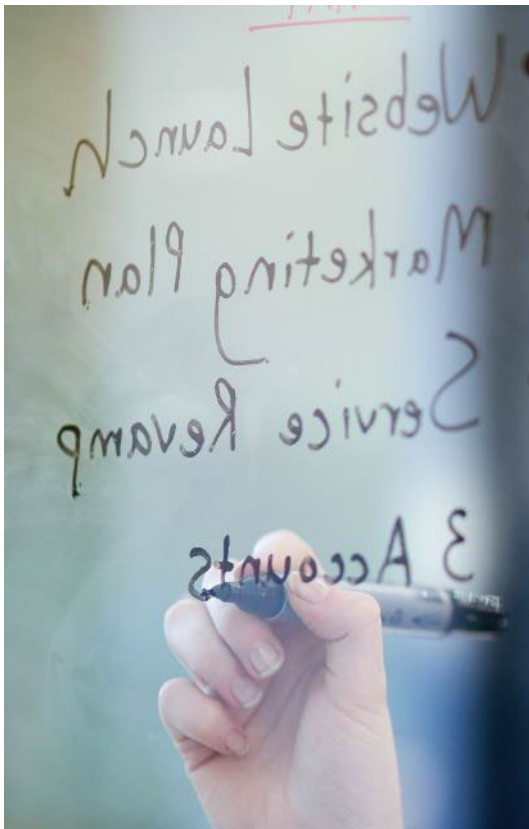 Website Launch
Marketing Plan
Service Revamp
3 Accounts